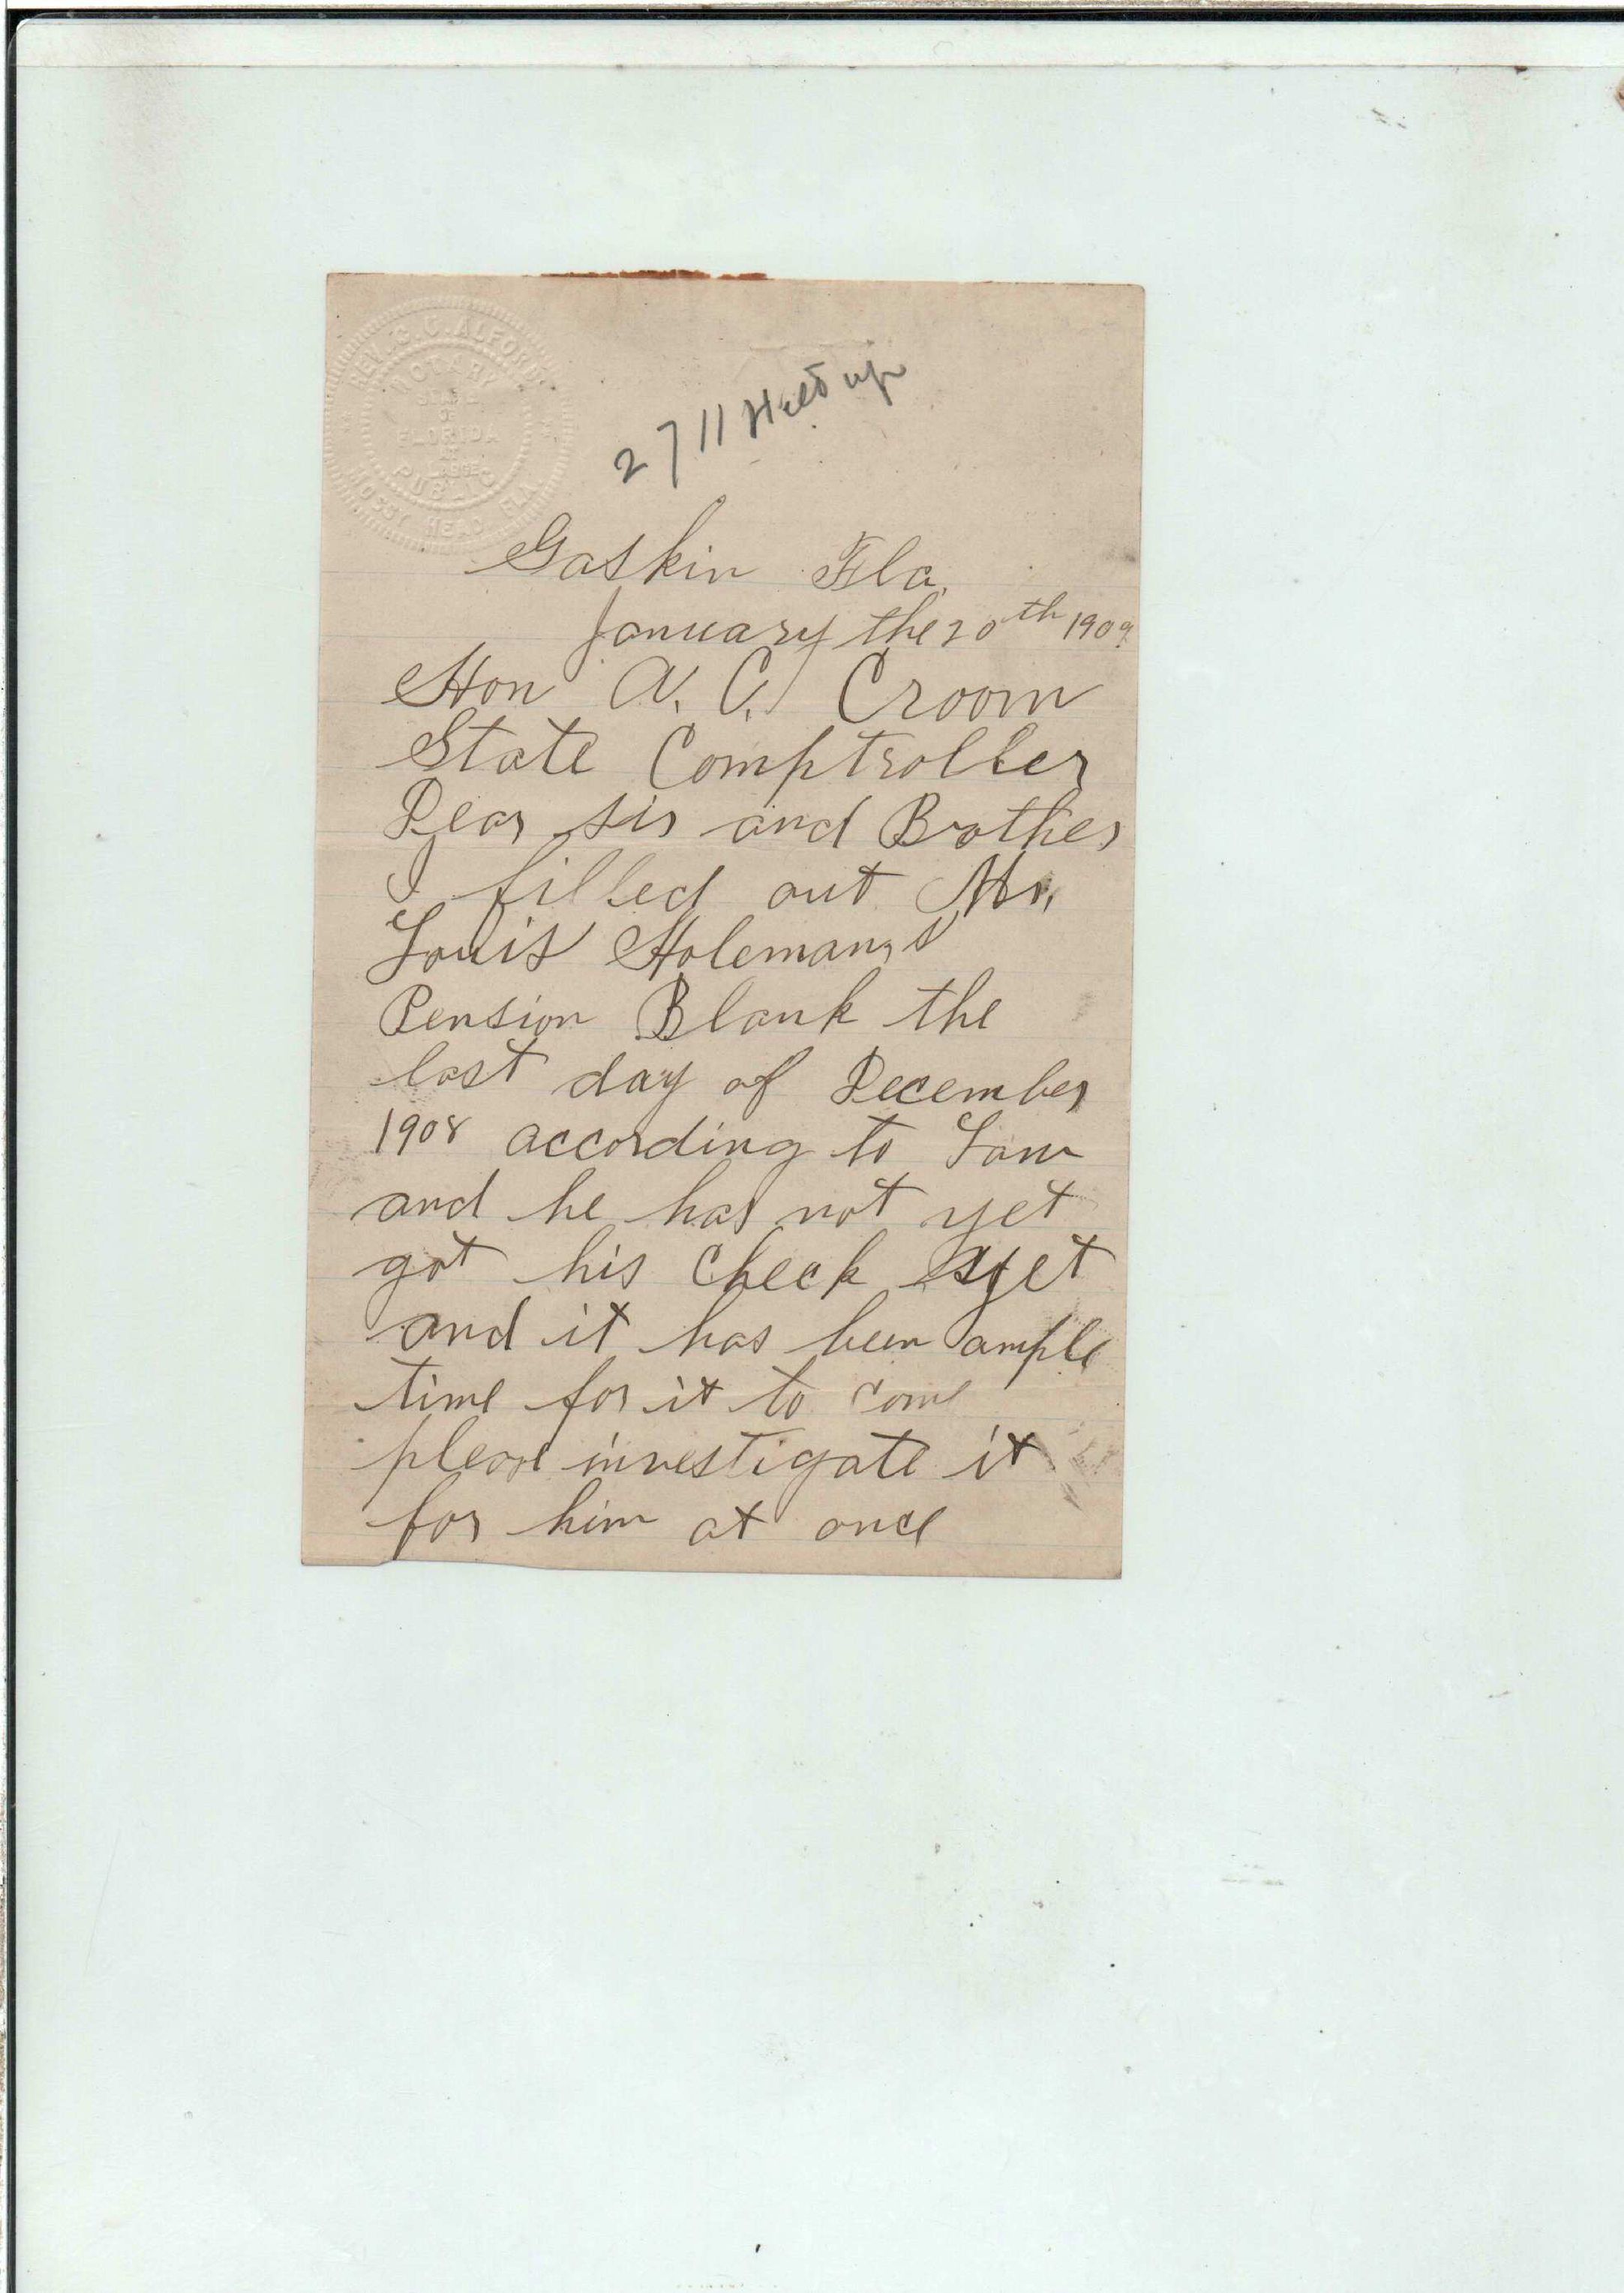 REV. S. C. ALFORD
NOTARY
STATE
OF
FLORIDA
AT
LARGE
PUBLIC
MOSSY HEAD FLA.
2711 Held up
Gaskin Fla.
January the 20th 1909
Hon A. C. Croom
State Comptroller
Dear sir and Brother
I filled out Mr.
Louis Holeman,s
Pension Blank the
last day of December
1908 according to Law
and he has not yet
got his check yet
and it has been ample
time for it to come
please investigate it
for him at once